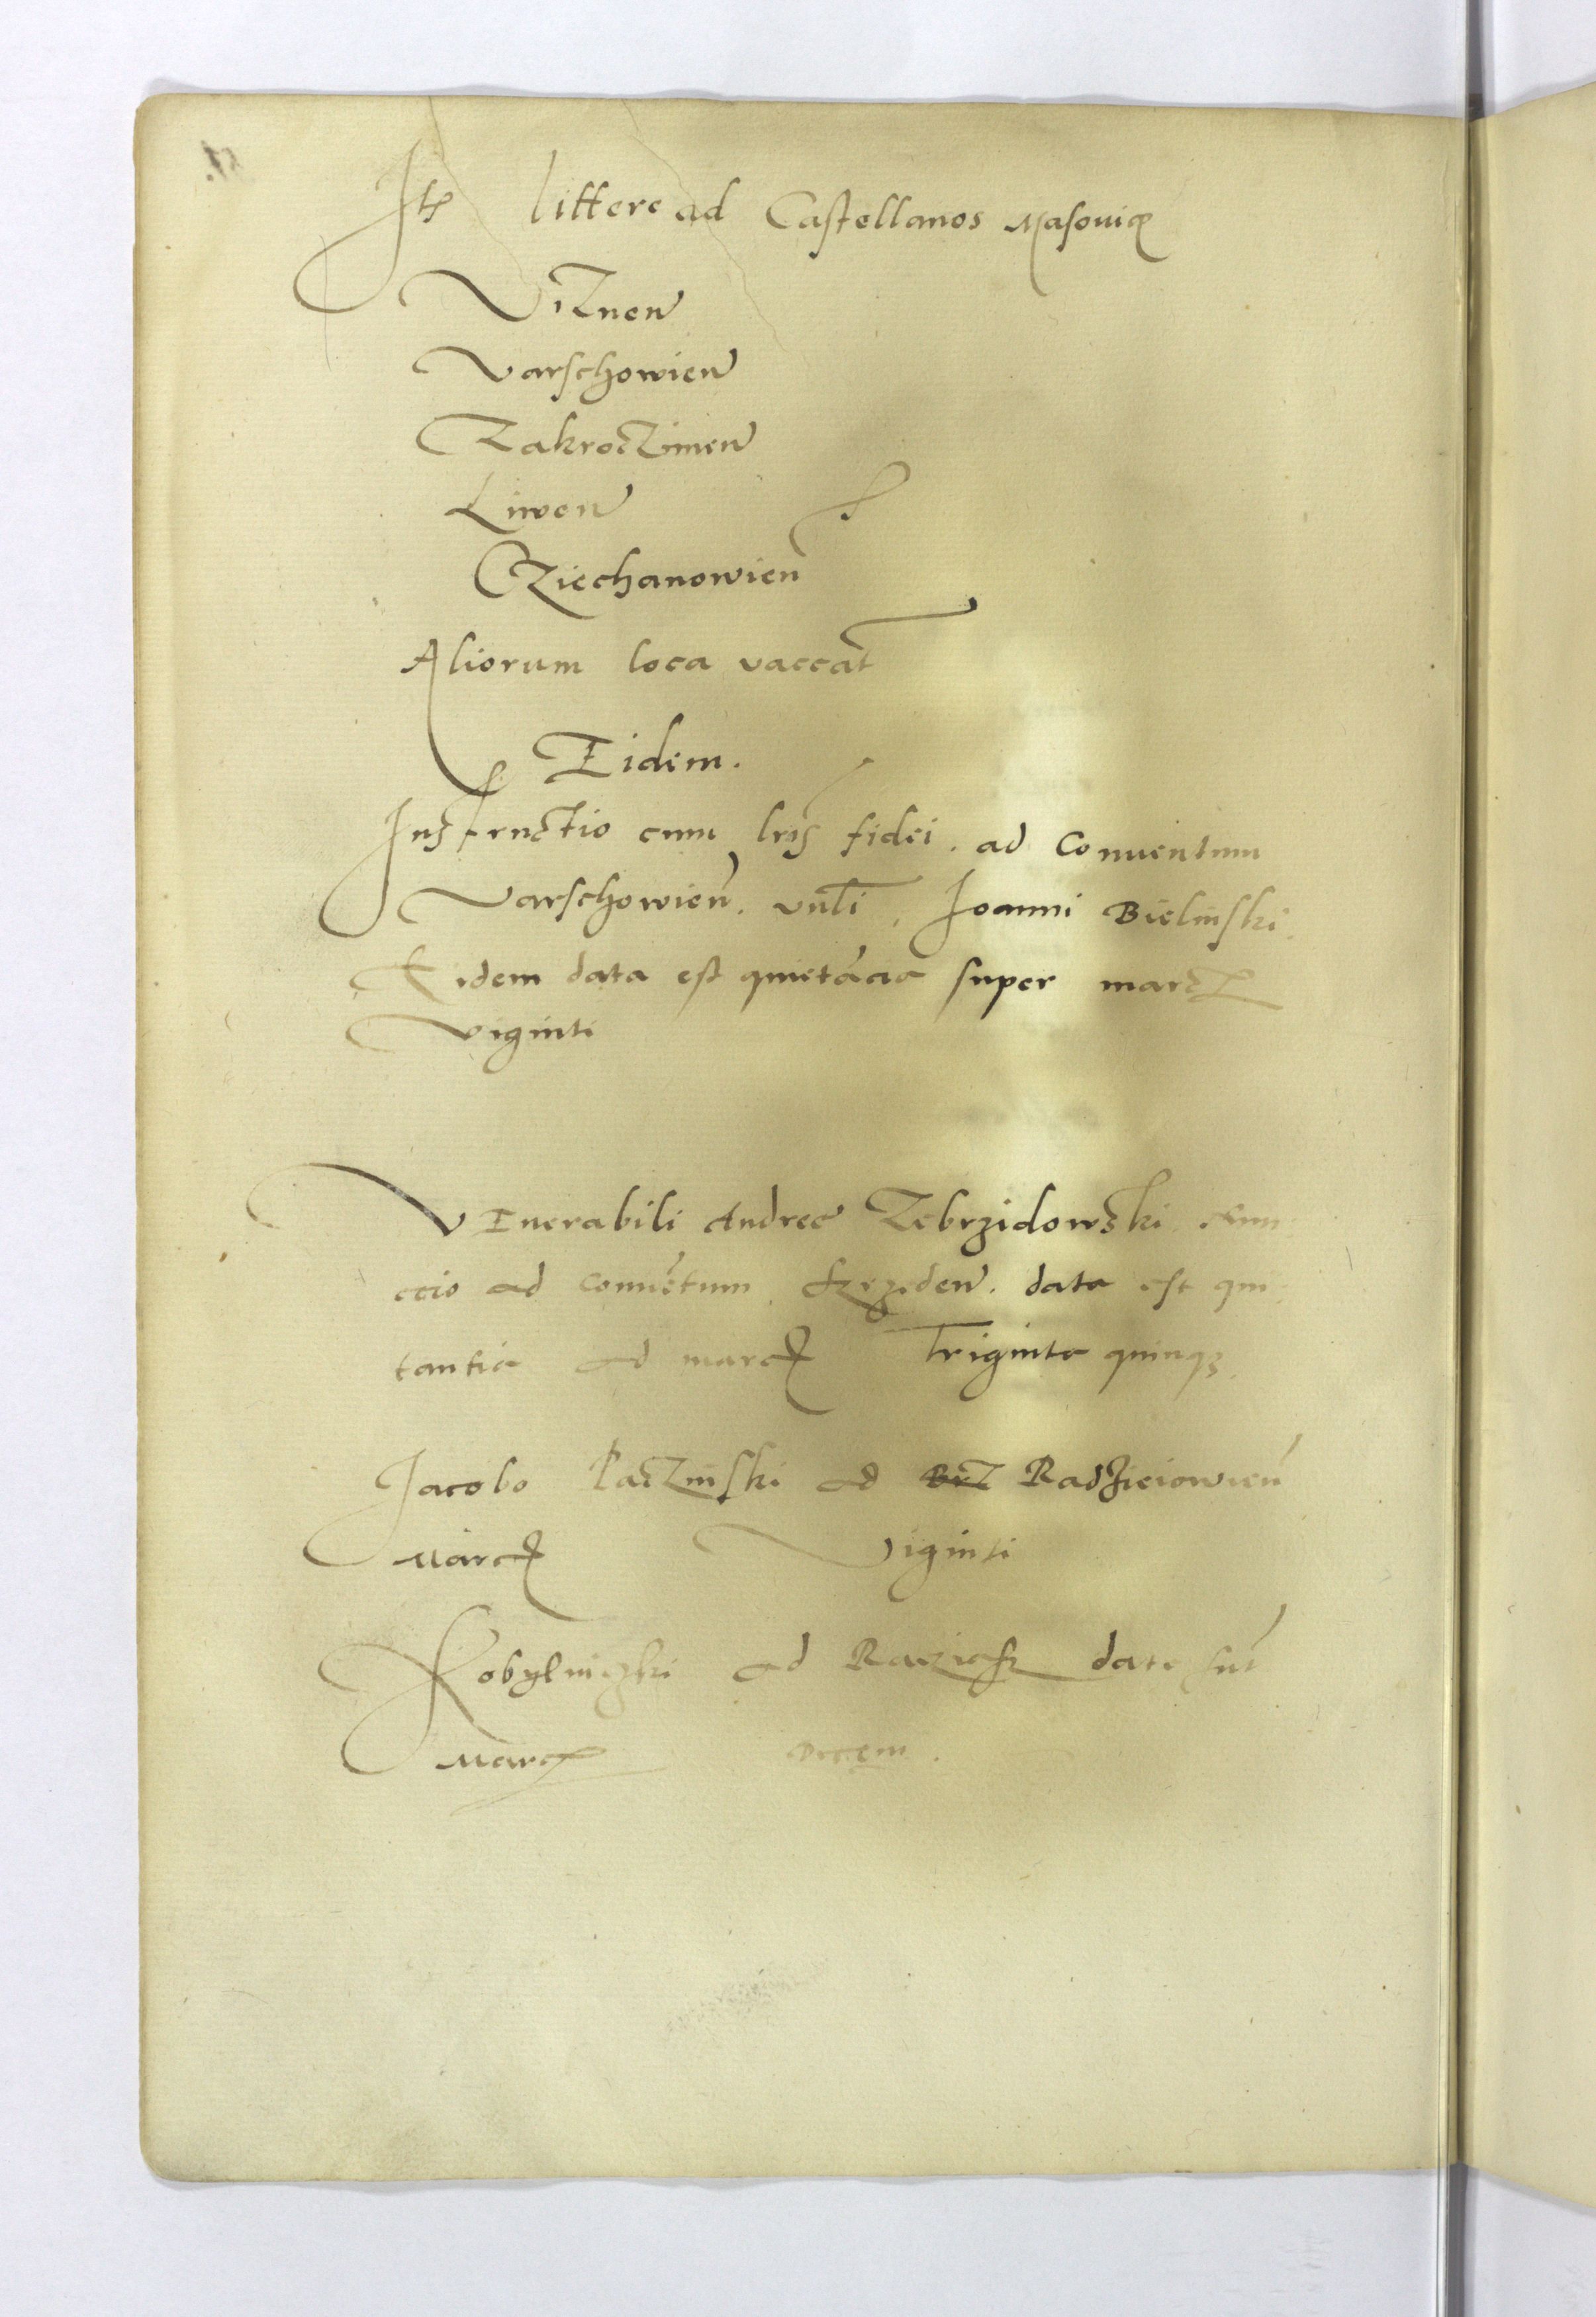 Itē littere ad Castellanos Masovię
Viznen
Varschowien
Zakroczimen
Liwen
Cziechanowien
Aliorum loca vaccāt
Eidem.
Instructio cum lr̄is fidei. ad Conventum
Varschowien̄. vnl̄i, Joanni Bielinski.
Eidem data est quietācia super marc
viginti
Venerabili Andree Zebrzidowski. Nun
ccio ad conuētum Szrzeden. data est qui
tantia ad marc Triginta quinq3
Jacobo Laczinski ad Radzieiowien̄
Marc Viginti
Kobylniczki ad Raciąsz date sūt
Marc Decem.